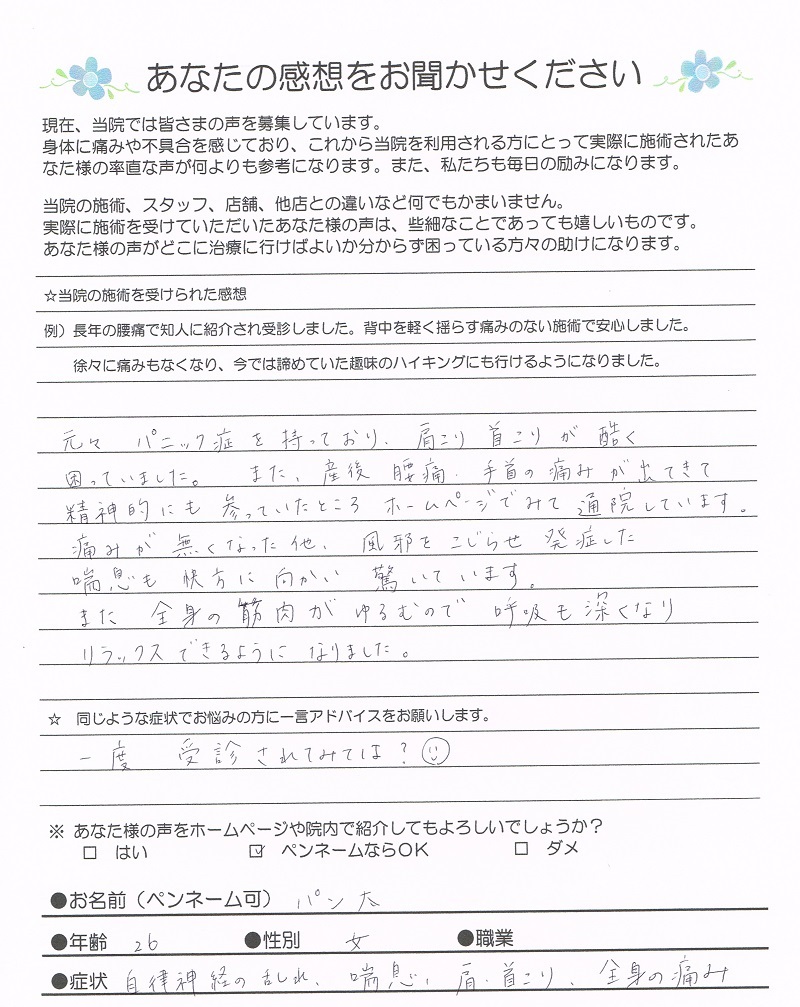 あなたの感想をお聞かせください
現在、当院では皆さまの声を募集しています。
身体に痛みや不具合を感じており、これから当院を利用される方にとって実際に施術されたあ
なた様の率直な声が何よりも参考になります。また、私たちも毎日の励みになります。
当院の施術、スタッフ、店舗、他店との違いなど何でもかまいません。
実際に施術を受けていただいたあなた様の声は、些細なことであっても嬉しいものです。
あなた様の声がどこに治療に行けばよいか分からず困っている方々の助けになります。
☆当院の施術を受けられた感想
例）長年の腰痛で知人に紹介され受診しました。背中を軽く揺らす痛みのない施術で安心しました。
徐々に痛みもなくなり、今では諦めていた趣味のハイキングにも行けるようになりました。
元々 パニック症を持っており、肩こり 首こりが 酷く
困っていました。 また、産後 腰痛・手首の痛みが出てきて
精神的にも 参っていたところ ホームページでみて 通院しています。
痛みが 無くなった他、風邪をこじらせ 発症した
喘息も 快方に向かい 驚いています。
また 全身の筋肉が ゆるむので 呼吸も深くなり
リラックスできるように なりました。
☆ 同じような症状でお悩みの方に一言アドバイスをお願いします。
一度 受診されてみては？
※ あなた様の声をホームページや院内で紹介してもよろしいでしょうか？
□ はい ☑ ペンネームならOK □ ダメ
●お名前（ペンネーム可） パン太
●年齢 26 ●性別 女 ●職業
●症状 自律神経の乱れ、喘息、肩・首こり、全身の痛み